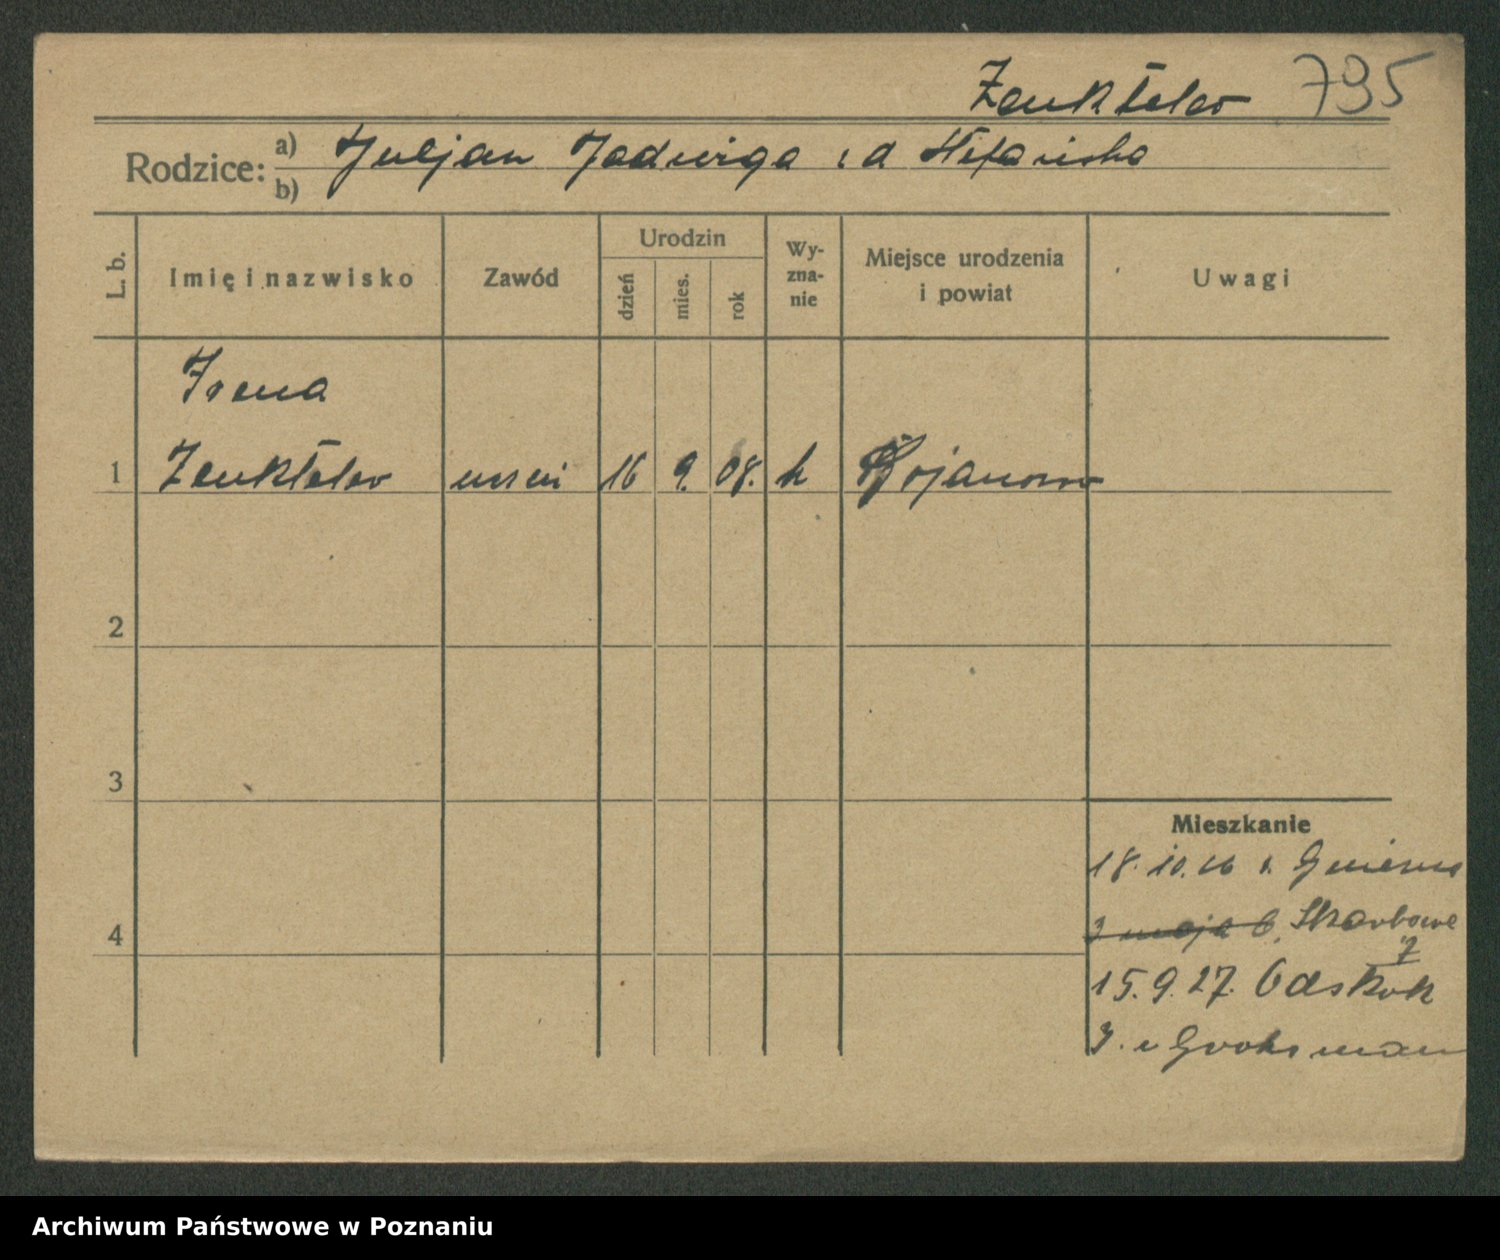 Zenkteler 795
Rodzice: a) Juljan Jadwiga z d Stefańska
b)
L. b. Imię i nazwisko Zawód Urodzin dzień mies. rok Wyzna-nie Miejsce urodzenia i powiat Uwagi
Irena
1 Zenkteler uczeń 16 9. 08. k Bojanowo
2
3
Mieszkanie
18.10.26 z Gniezno
4 3 maja 6. Skarbowa
7
15.9.27. Odskok
3. u Grohsmann
Archiwum Państwowe w Poznaniu